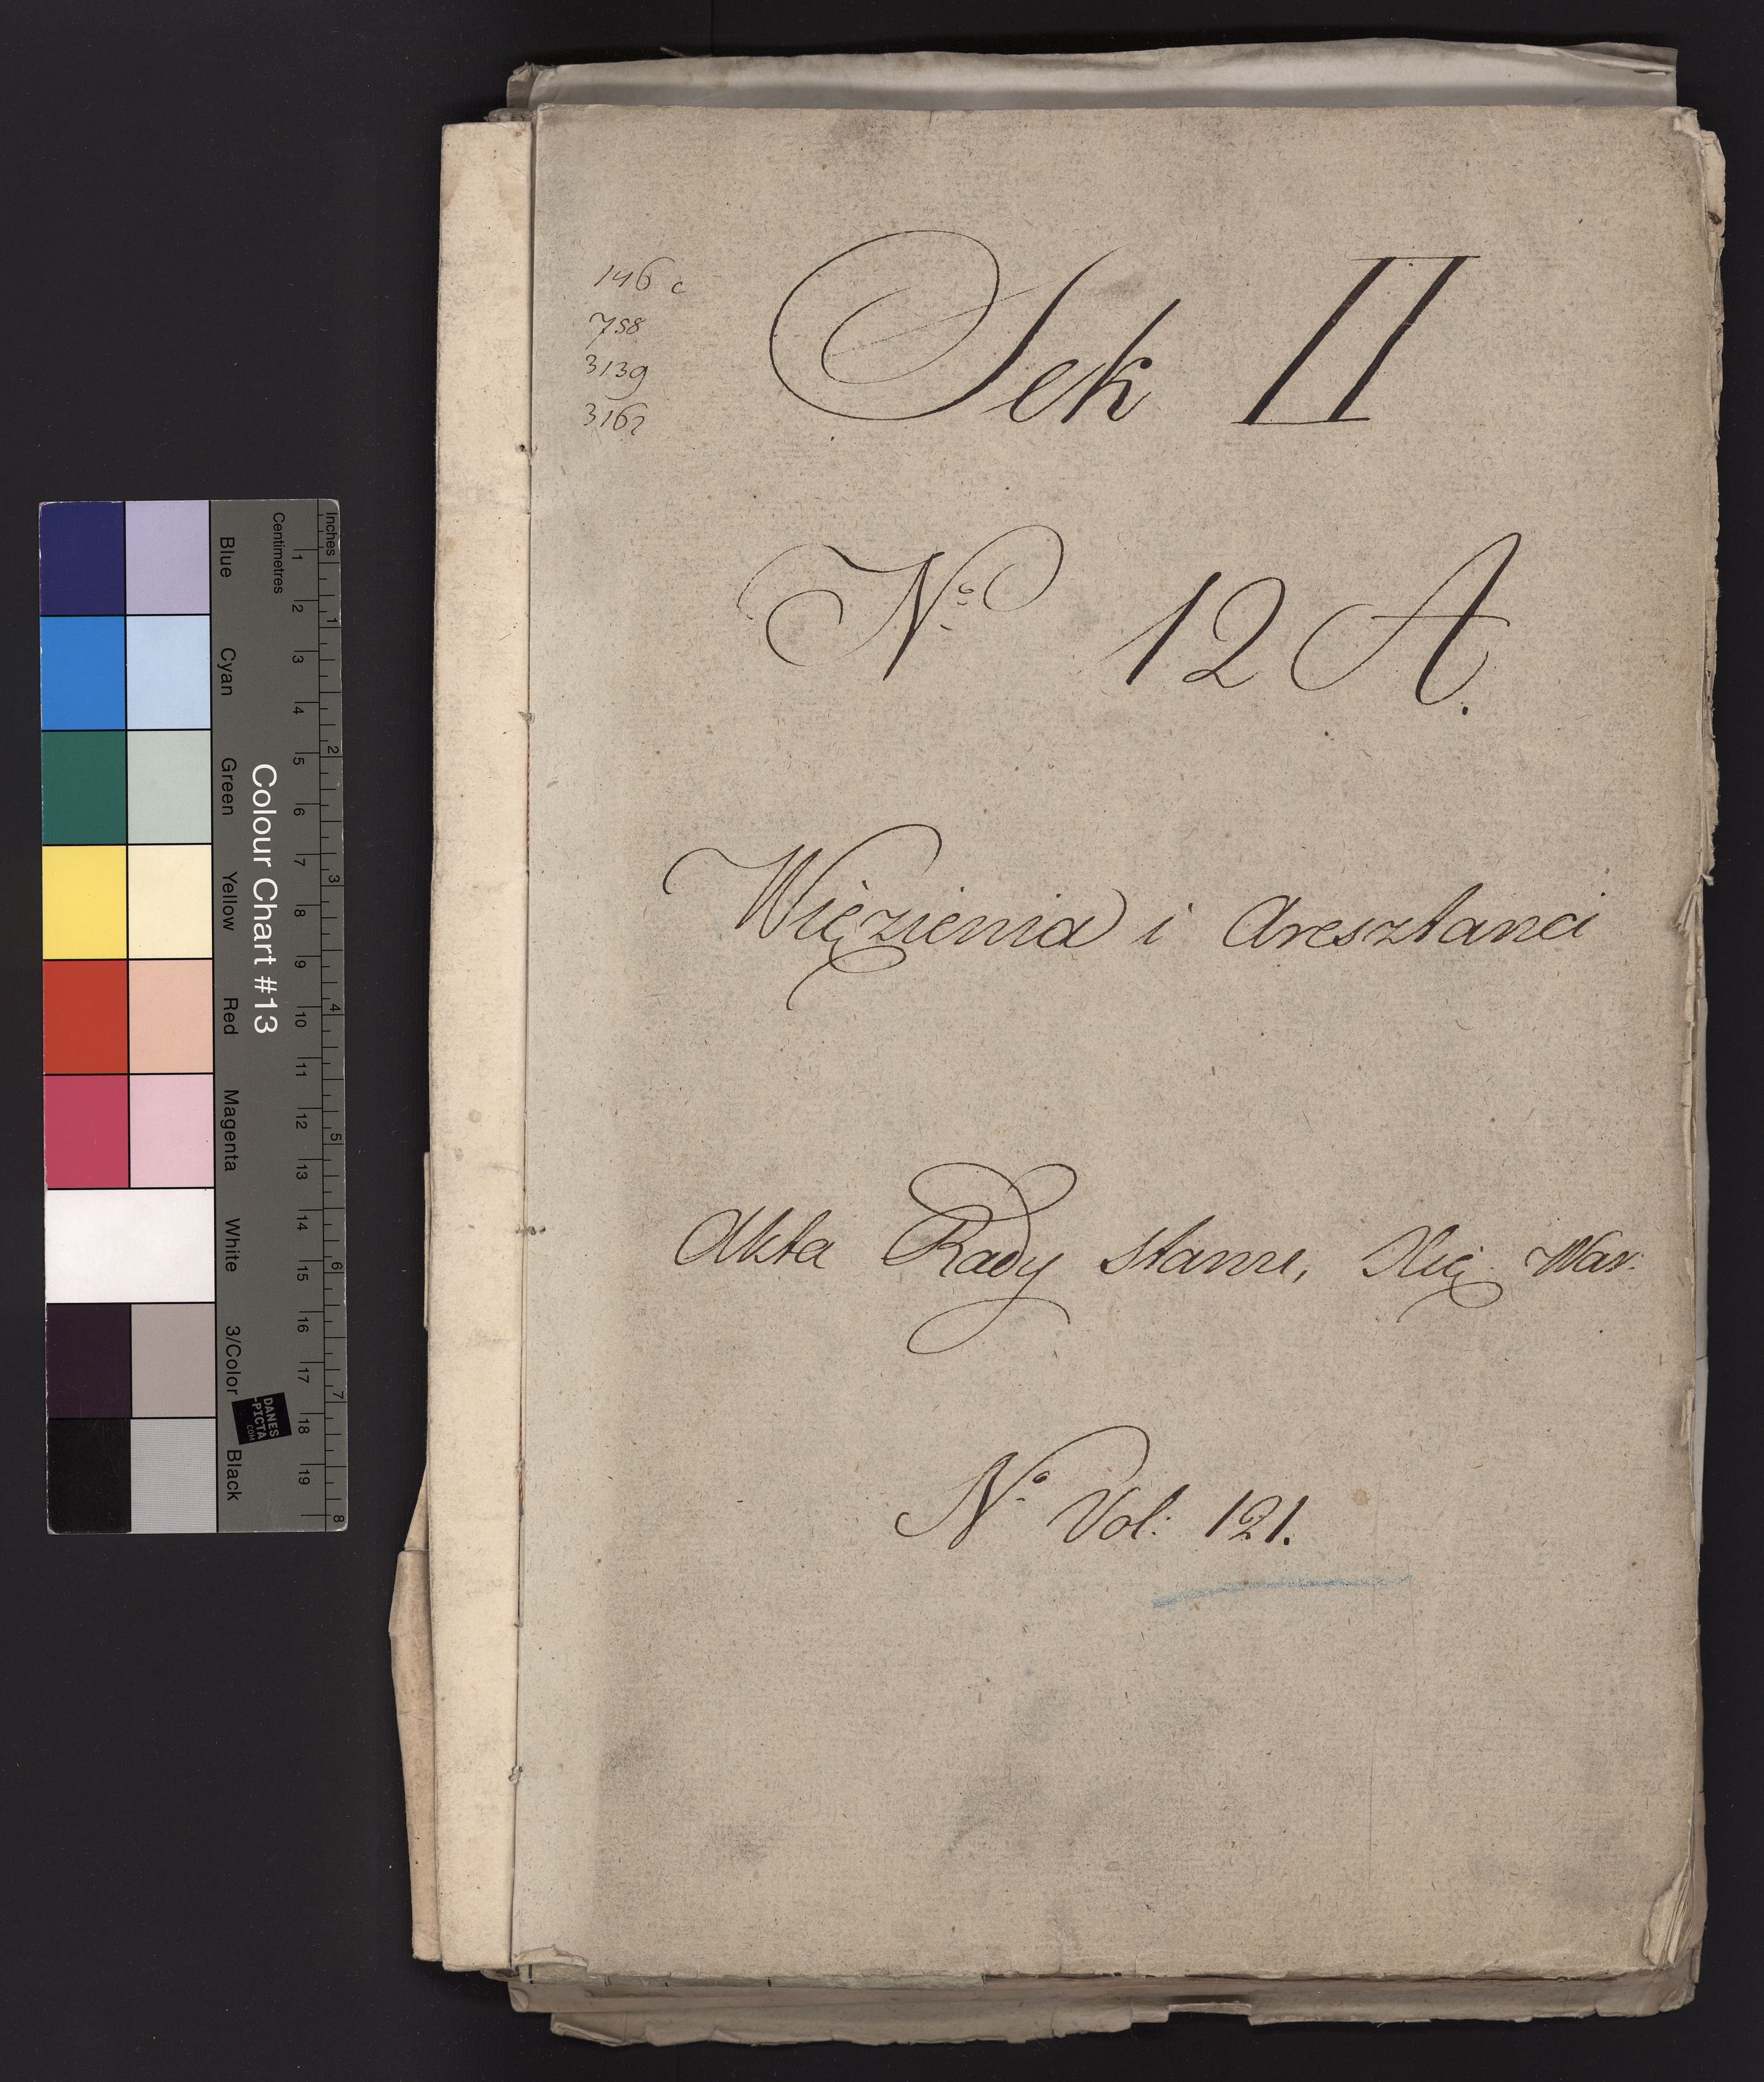 146 c
758
3139
3162
Sek II
No 12 A.
Więzienia i Aresztanci
Akta Rady Stanu, Xię: War:
No Vol: 121.
Inches
Centimetres
1 2 3 4 5 6 7 8 9 10 11 12 13 14 15 16 17 18 19
1 2 3 4 5 6 7 8
Colour Chart #13
Blue
Cyan
Green
Yellow
Red
Magenta
White
3/Color
Black
DANES
-PICTA
.COM